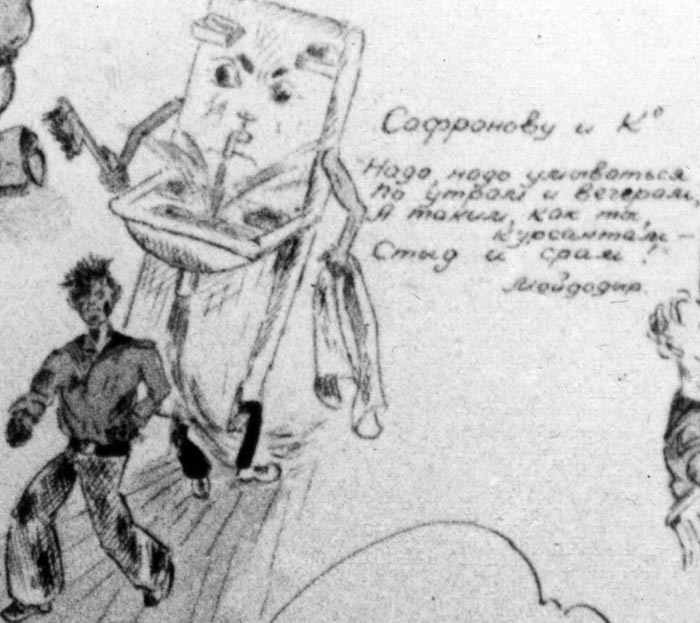 Сафронову и К°
Надо, надо умываться
По утрам и вечерам,
А таким, как ты,
курсантам —
Стыд и срам!
Мойдодыр.